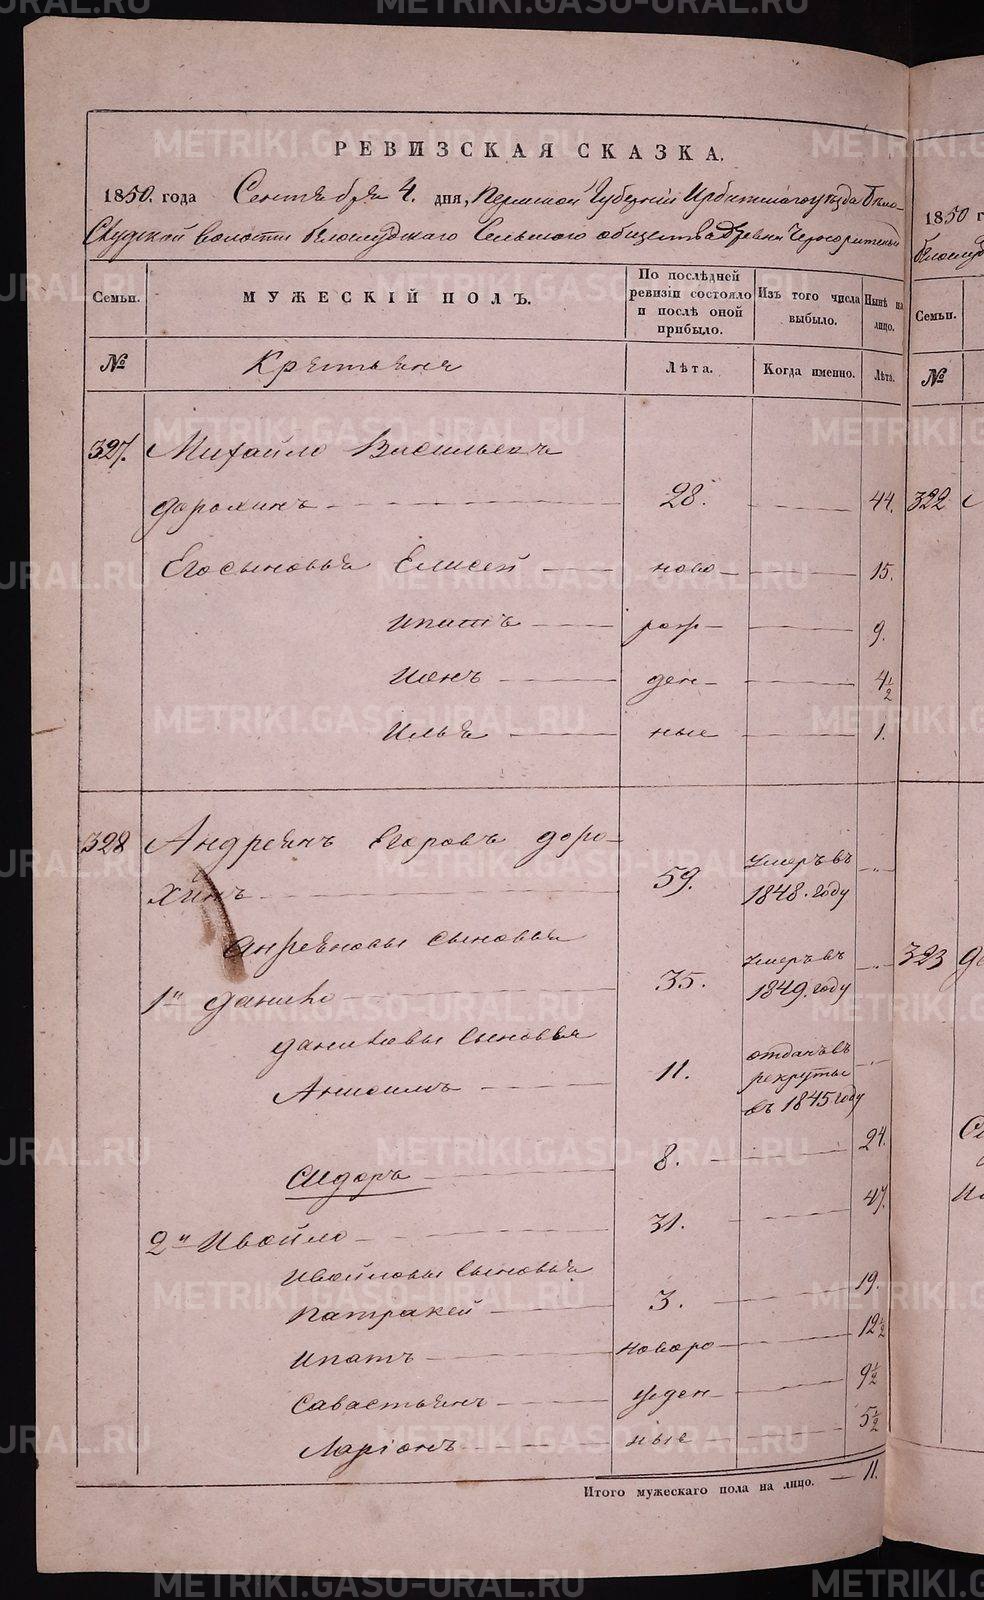 РЕВИЗСКАЯ СКАЗКА.
1850. года Сентября 4. дня, Пермской Губернии Ирбитского уезда Бело-
Слудской волости Белослудского Сельского общества Деревни
Семьи. МУЖЕСКІЙ ПОЛЪ. По послѣдней ревизіи состояло и послѣ оной прибыло. Изъ того числа выбыло. Нынѣ на лицо.
№ Крестьяне Лѣта. Когда именно. Лѣта.
327. Михайло Васильевъ
дорохинъ 28. 44.
Егосыновья Елисей ново 15.
Ипатъ рож 9.
Ионъ ден 4 1/2
Илья ные 1.
328 Андреянъ Егоровъ доро-
хинъ 59. Умеръ въ 1848. году
Андреяновы сыновья
1й Данило 35. Умеръ въ 1849. году
даниловы сыновья
11. отданъ въ рекруты въ 1845 году
Сидоръ 8. 24.
2й Ивойло 31. 47.
Ивойловы сыновья
Патракей 3. 19.
Ипатъ новоро 12 1/2
Савастьянъ жден 9 1/2
Ларіонъ ные 5 1/2
Итого мужескаго пола на лицо. 11.
1850 г
Белослуд
Семьи.
№
322
323
METRIKI.GASO-URAL.RU